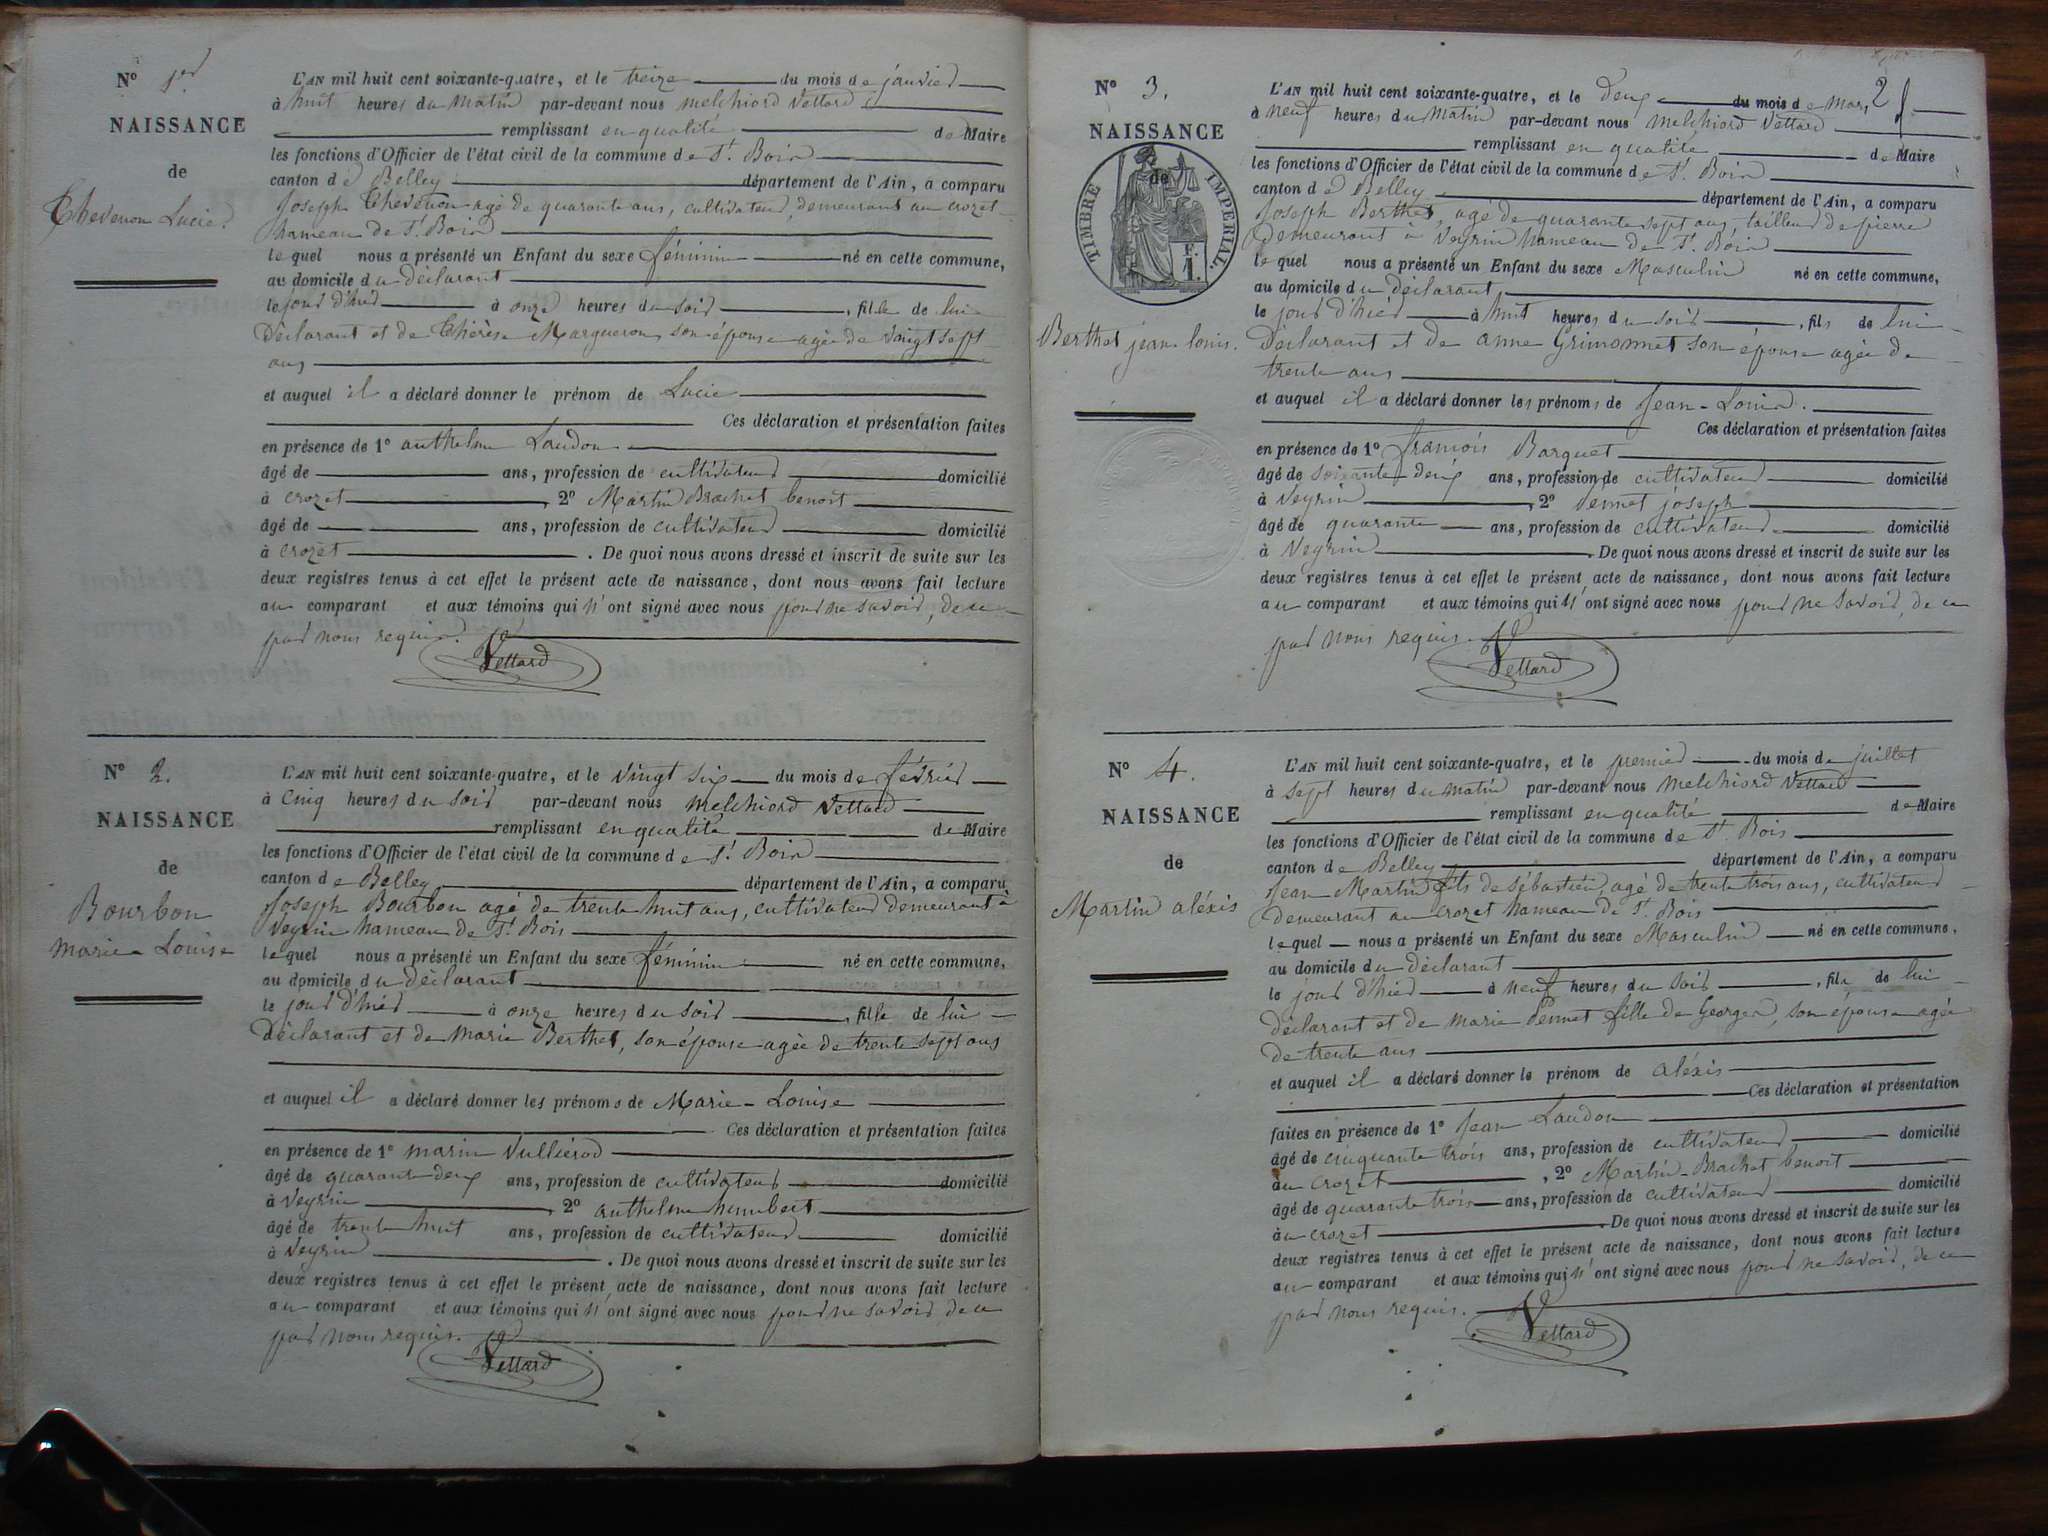 N° 1er
NAISSANCE
de
Thevenon Lucie.
L'AN mil huit cent soixante-quatre, et le treize du mois de janvier
à huit heures du matin par-devant nous melchiord Vettard
remplissant en qualité de Maire
les fonctions d'Officier de l'état civil de la commune de St. Bois
canton de Belley département de l'Ain, a comparu
Joseph Thevenon agé de quarante ans, cultivateur, demeurant au crozet
hameau de St. Bois
lequel nous a présenté un Enfant du sexe féminin né en cette commune,
au domicile du déclarant
le jour d'hier à onze heures du soir, fille de lui
Déclarant et de Thérèse Marqueron son épouse agée de vingt sept
ans
et auquel il a déclaré donner le prénom de Lucie
Ces déclaration et présentation faites
en présence de 1° anthelme Laudon
âgé de ans, profession de cultivateur domicilié
à crozet, 2° Martin Brachet benoit
âgé de ans, profession de cultivateur domicilié
à crozet. De quoi nous avons dressé et inscrit de suite sur les
deux registres tenus à cet effet le présent acte de naissance, dont nous avons fait lecture
au comparant et aux témoins qui n'ont signé avec nous pour ne savoir, de ce
par nous requis.
Vettard
N° 2.
NAISSANCE
de
Bourbon
marie Louise
L'AN mil huit cent soixante-quatre, et le vingt six du mois de février
à cinq heures du soir par-devant nous melchiord Vettard
remplissant en qualité de Maire
les fonctions d'Officier de l'état civil de la commune de St. Bois
canton de Belley département de l'Ain, a comparu
Joseph Bourbon agé de trente huit ans, cultivateur demeurant à
Veyrin hameau de St. Bois
lequel nous a présenté un Enfant du sexe féminin né en cette commune,
au domicile du déclarant
le jour d'hier à onze heures du soir, fille de lui
Déclarant et de Marie Berthet, son épouse agée de trente sept ans
et auquel il a déclaré donner les prénoms de Marie-Louise
Ces déclaration et présentation faites
en présence de 1° marin Vullierod
âgé de quarante deux ans, profession de cultivateur domicilié
à Veyrin, 2° anthelme humbert
âgé de trente huit ans, profession de cultivateur domicilié
à Veyrin. De quoi nous avons dressé et inscrit de suite sur les
deux registres tenus à cet effet le présent acte de naissance, dont nous avons fait lecture
au comparant et aux témoins qui n'ont signé avec nous pour ne savoir, de ce
par nous requis.
Vettard
2
N° 3.
NAISSANCE
de
TIMBRE IMPERIAL.
F.
1.
Berthet jean louis.
L'AN mil huit cent soixante-quatre, et le deux du mois de Mars
à neuf heures du matin par-devant nous melchiord Vettard
remplissant en qualité de Maire
les fonctions d'Officier de l'état civil de la commune de St. Bois
canton de Belley département de l'Ain, a comparu
Joseph Berthet, agé de quarante sept ans tailleur de pierre
Demeurant à Veyrin hameau de St. Bois
lequel nous a présenté un Enfant du sexe Masculin né en cette commune,
au domicile du déclarant
le jour d'hier à huit heures du soir, fils de lui
Déclarant et de anne Grimonnet son épouse agée de
trente ans
et auquel il a déclaré donner les prénoms de Jean-Louis.
Ces déclaration et présentation faites
en présence de 1° françois Barquet
âgé de soixante-deux ans, profession de cultivateur domicilié
à Veyrin, 2° Pennet joseph
âgé de quarante ans, profession de cultivateur domicilié
à Veyrin. De quoi nous avons dressé et inscrit de suite sur les
deux registres tenus à cet effet le présent acte de naissance, dont nous avons fait lecture
au comparant et aux témoins qui n'ont signé avec nous pour ne savoir, de ce
par nous requis.
Vettard
N° 4.
NAISSANCE
de
Martin aléxis
L'AN mil huit cent soixante-quatre, et le premier du mois de juillet
à sept heures du matin par-devant nous melchiord Vettard
remplissant en qualité de Maire
les fonctions d'Officier de l'état civil de la commune de St. Bois
canton de Belley département de l'Ain, a comparu
Jean Martin fils de Sébastien, agé de trente trois ans, cultivateur
demeurant au crozet hameau de St. Bois
lequel nous a présenté un Enfant du sexe Masculin né en cette commune,
au domicile du déclarant
le jour d'hier à neuf heures du soir, fils de lui
déclarant et de marie Pennet fille de Georges, son épouse agée
de trente ans
et auquel il a déclaré donner le prénom de aléxis
Ces déclaration et présentation
faites en présence de 1° Jean Laudon
âgé de cinquante trois ans, profession de cultivateur domicilié
au crozet, 2° Martin-Brachet benoit
âgé de quarante trois ans, profession de cultivateur domicilié
au crozet. De quoi nous avons dressé et inscrit de suite sur les
deux registres tenus à cet effet le présent acte de naissance, dont nous avons fait lecture
au comparant et aux témoins qui n'ont signé avec nous pour ne savoir, de ce
par nous requis.
Vettard